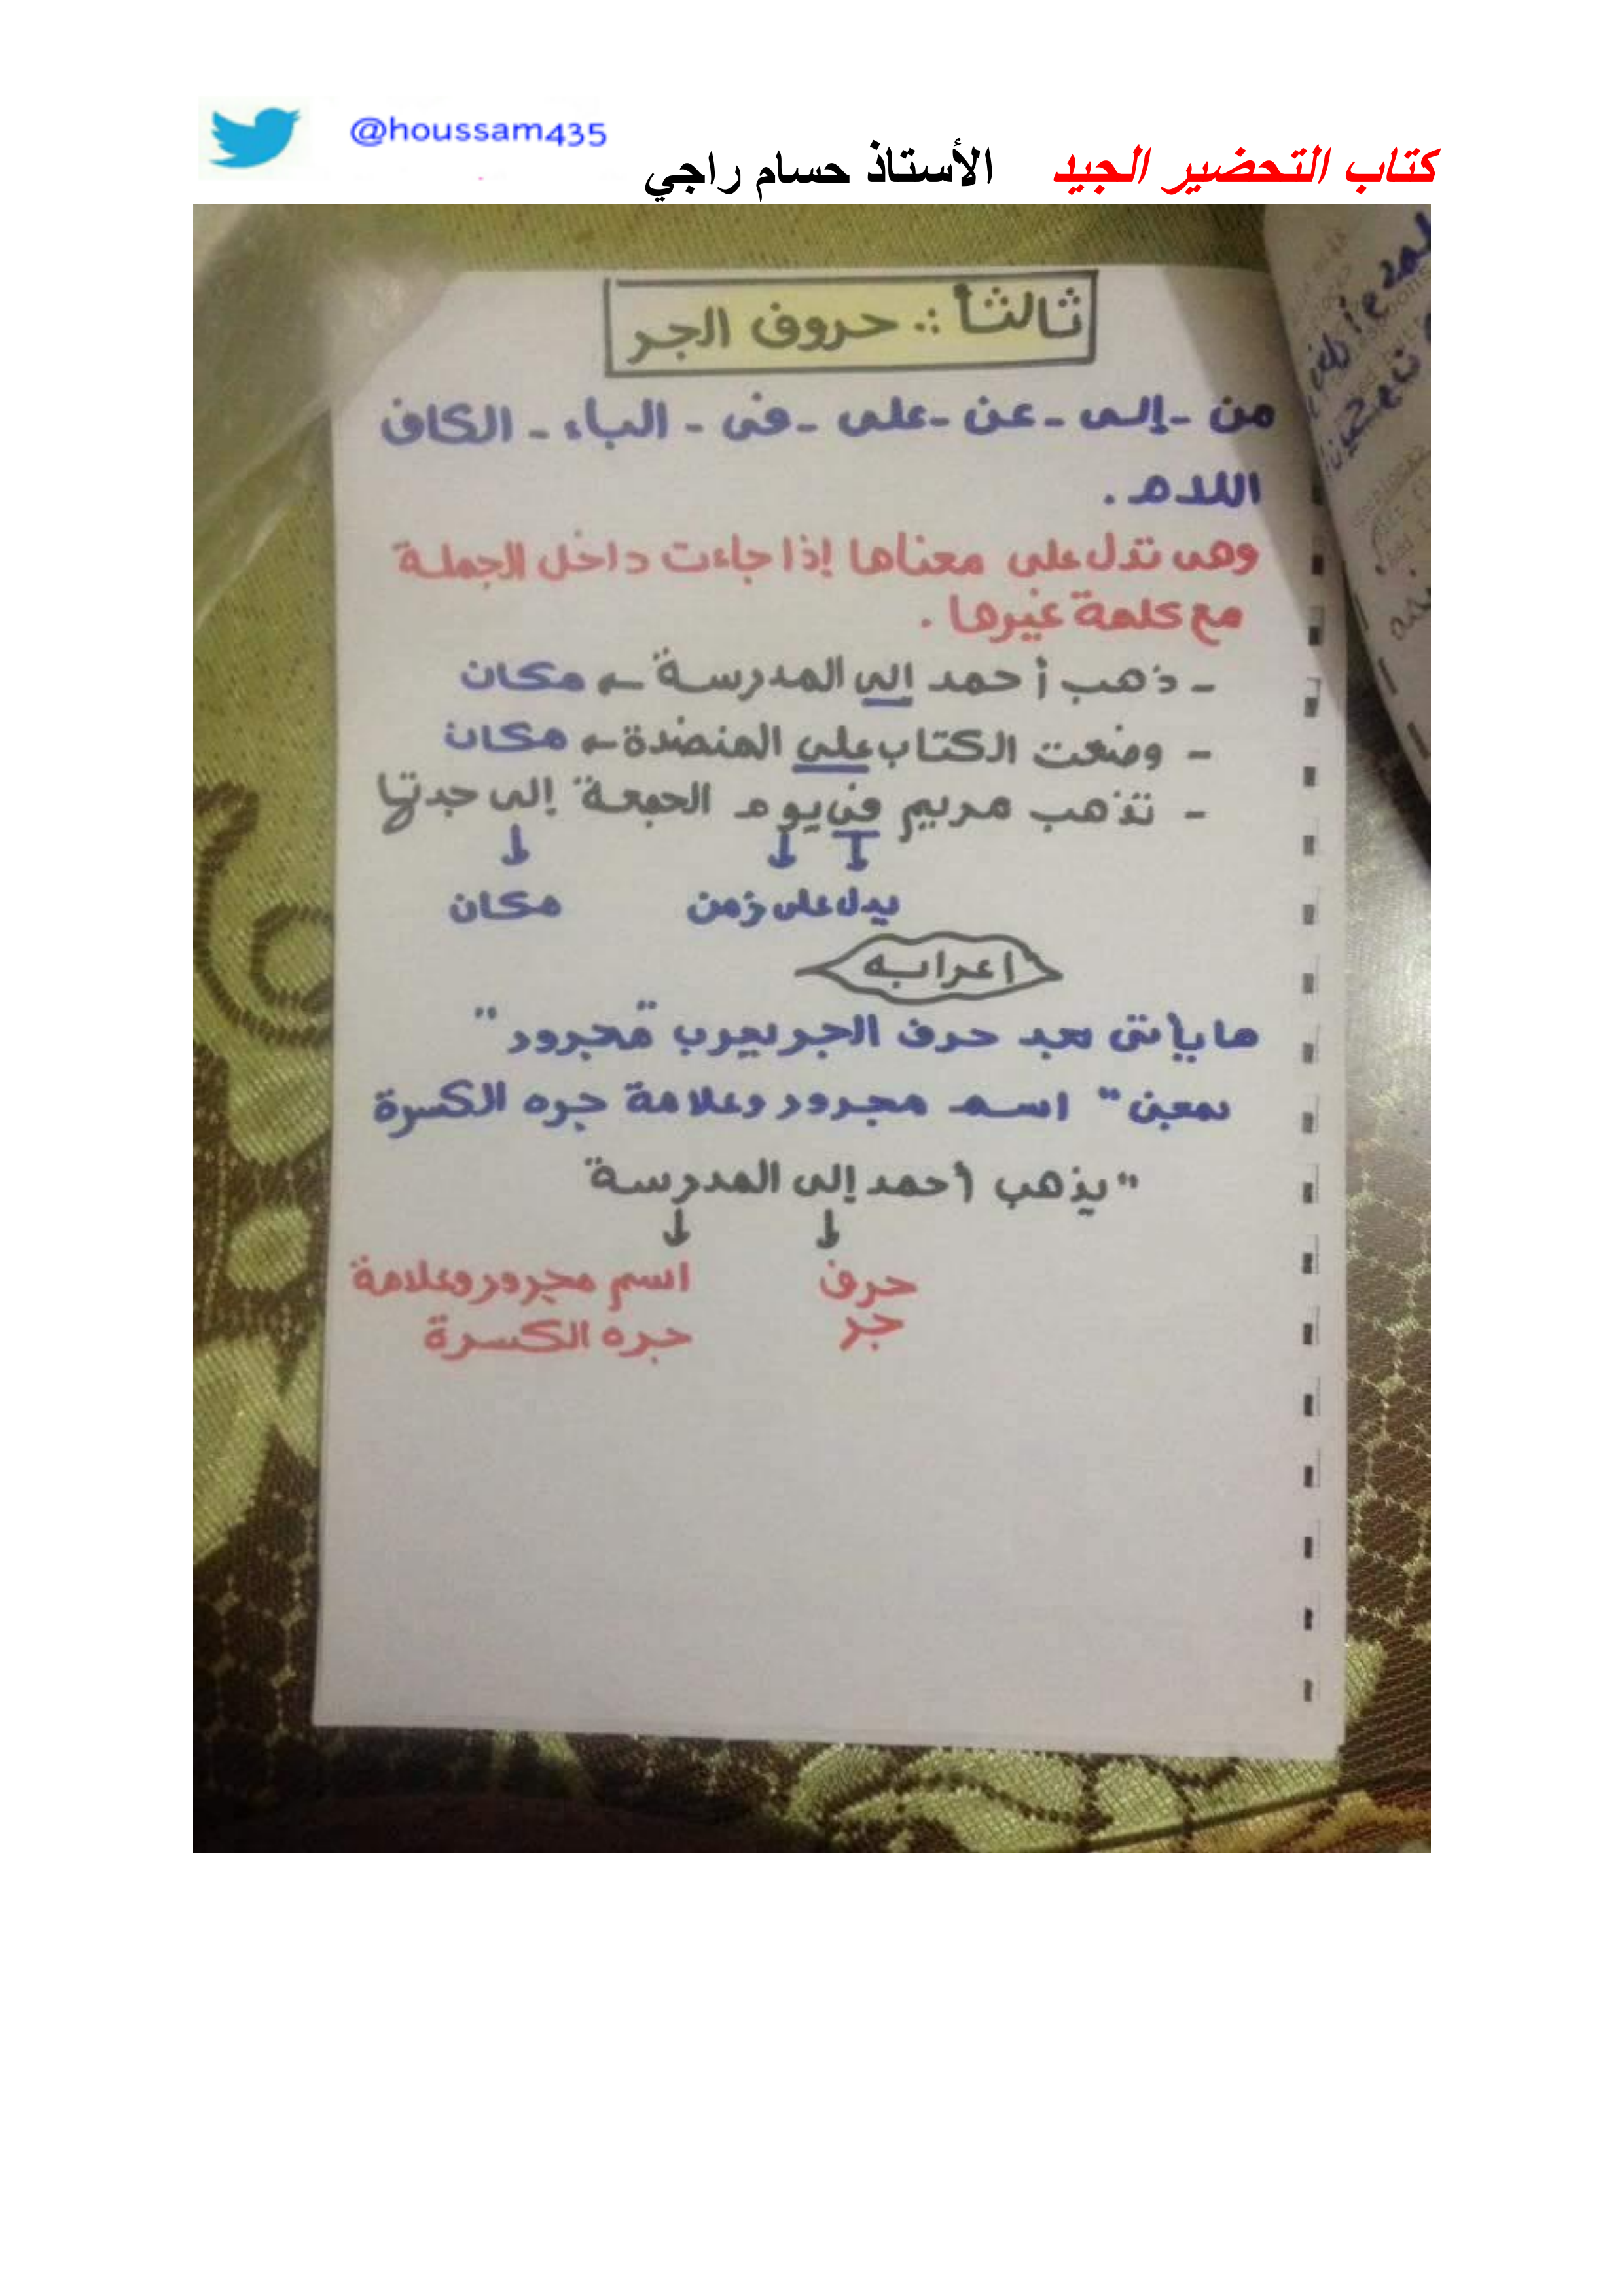 @houssam435
كتاب التحضير الجيد الأستاذ حسام راجي
ثالثاً :. حروف الجر
من - إلى - عن - على - فى - الباء - الكاف
اللام .
وهى تدل على معناها إذا جاءت داخل الجملة
مع كلمة غيرها .
- ذهب أحمد إلى المدرسة ← مكان
- وضعت الكتاب على المنضدة ← مكان
- تذهب مريم فى يوم الجمعة إلى جدتها
↓ ↓ ↓
يدل على زمن مكان
اعرابه
ما يأتى بعد حرف الجر يعرب "مجرور"
بمعنى " اسم مجرور وعلامة جره الكسرة
"يذهب أحمد إلى المدرسة
↓ ↓
حرف اسم مجرور وعلامة
جر جره الكسرة